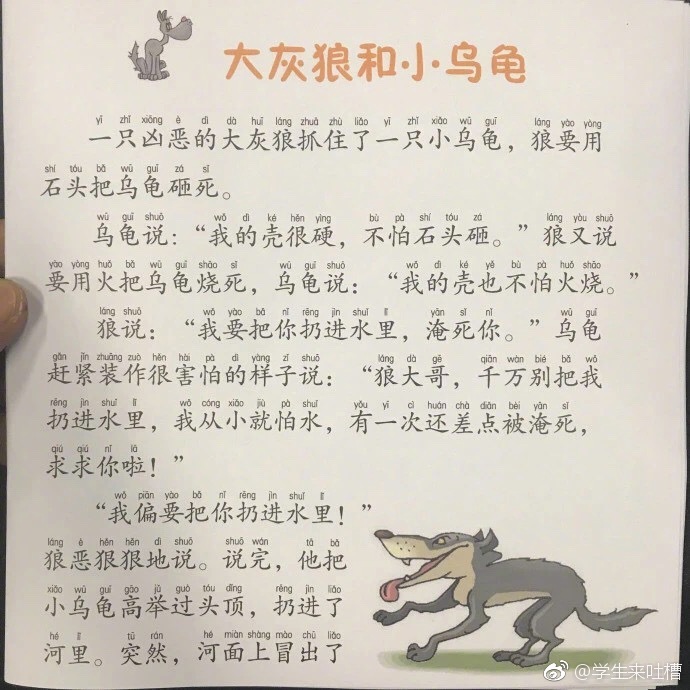 大灰狼和小乌龟
yī zhī xiōng è dì dà huī láng zhuā zhù liǎo yī zhī xiǎo wū guī láng yào yòng
一只凶恶的大灰狼抓住了一只小乌龟，狼要用
shí tóu bǎ wū guī zá sǐ
石头把乌龟砸死。
wū guī shuō wǒ dì ké hěn yìng bù pà shí tóu zá láng yòu shuō
乌龟说：“我的壳很硬，不怕石头砸。”狼又说
yào yòng huǒ bǎ wū guī shāo sǐ wū guī shuō wǒ dì ké yě bù pà huǒ shāo
要用火把乌龟烧死，乌龟说：“我的壳也不怕火烧。”
láng shuō wǒ yào bǎ nǐ rēng jìn shuǐ lǐ yān sǐ nǐ wū guī
狼说：“我要把你扔进水里，淹死你。”乌龟
gǎn jǐn zhuāng zuò hěn hài pà dì yàng zǐ shuō láng dà gē qiān wàn bié bǎ wǒ
赶紧装作很害怕的样子说：“狼大哥，千万别把我
rēng jìn shuǐ lǐ wǒ cóng xiǎo jiù pà shuǐ yǒu yī cì huán chà diǎn bèi yān sǐ
扔进水里，我从小就怕水，有一次还差点被淹死，
qiú qiú nǐ lā
求求你啦！”
wǒ piān yào bǎ nǐ rēng jìn shuǐ lǐ
“我偏要把你扔进水里！”
láng è hěn hěn dì shuō shuō wán tā bǎ
狼恶狠狠地说。说完，他把
xiǎo wū guī gāo jǔ guò tóu dǐng rēng jìn liǎo
小乌龟高举过头顶，扔进了
hé lǐ tū rán hé miàn shàng mào chū liǎo
河里。突然，河面上冒出了
@学生来吐槽